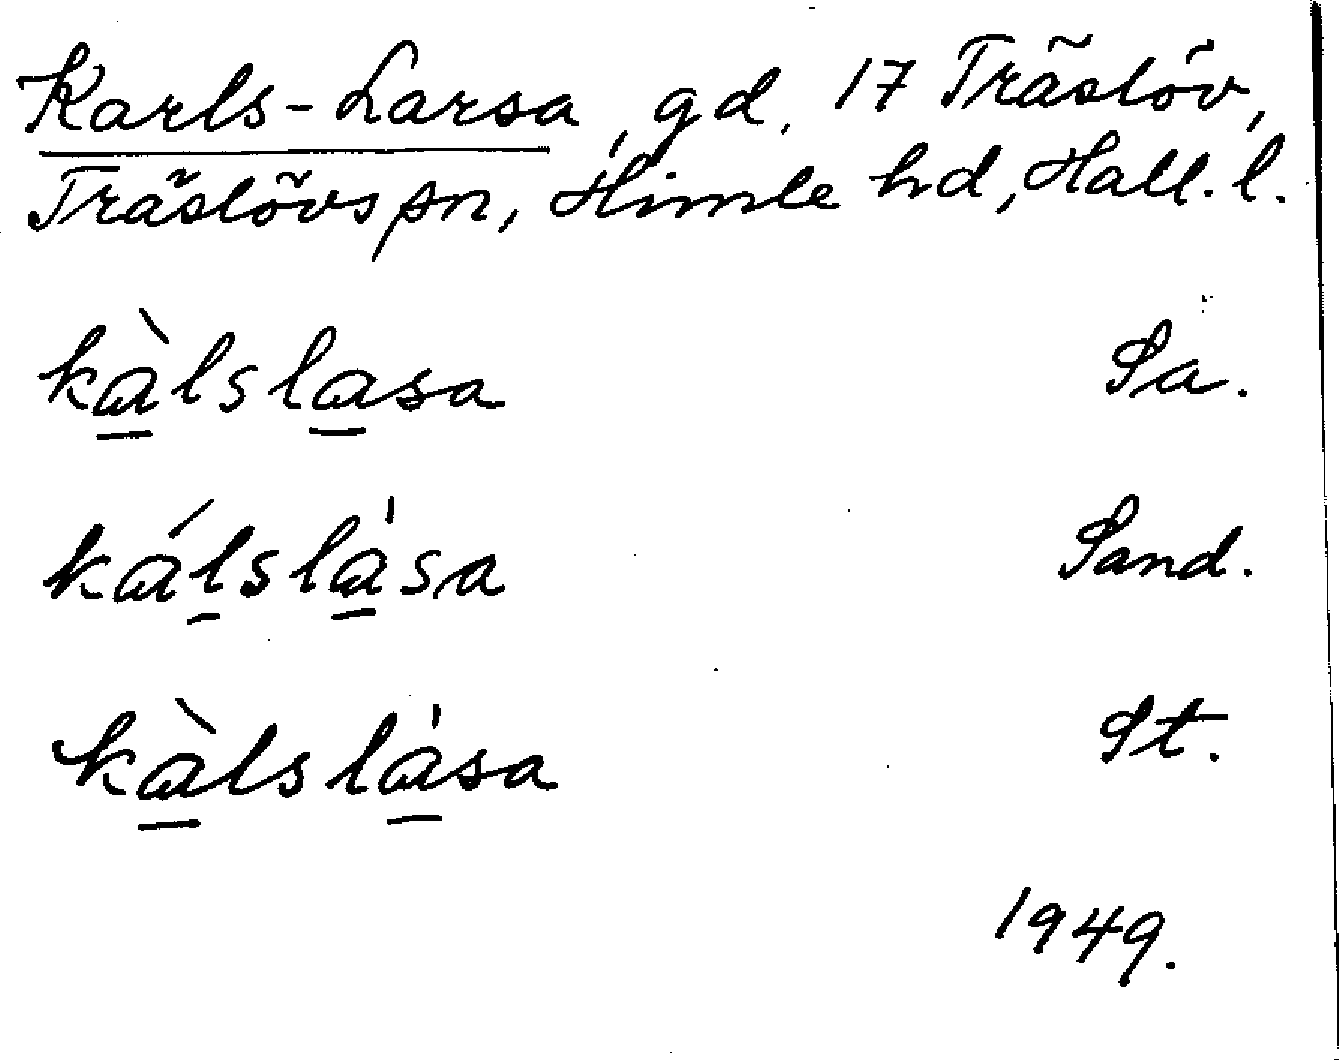 Karls-Larsa, gd, 17 Träslöv,
Träslövs sn, Himle hd, Hall. l.
kàlslasa Sa.
kálslása Sand.
kàlslása St.
1949.